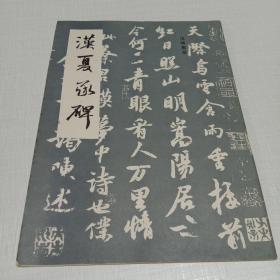 漢夏承碑
天際烏雲含雨重樓前
日照山明嵩陽居士
今何在青眼看人萬里情
蔡君謨夢中詩也僕
謁陳述